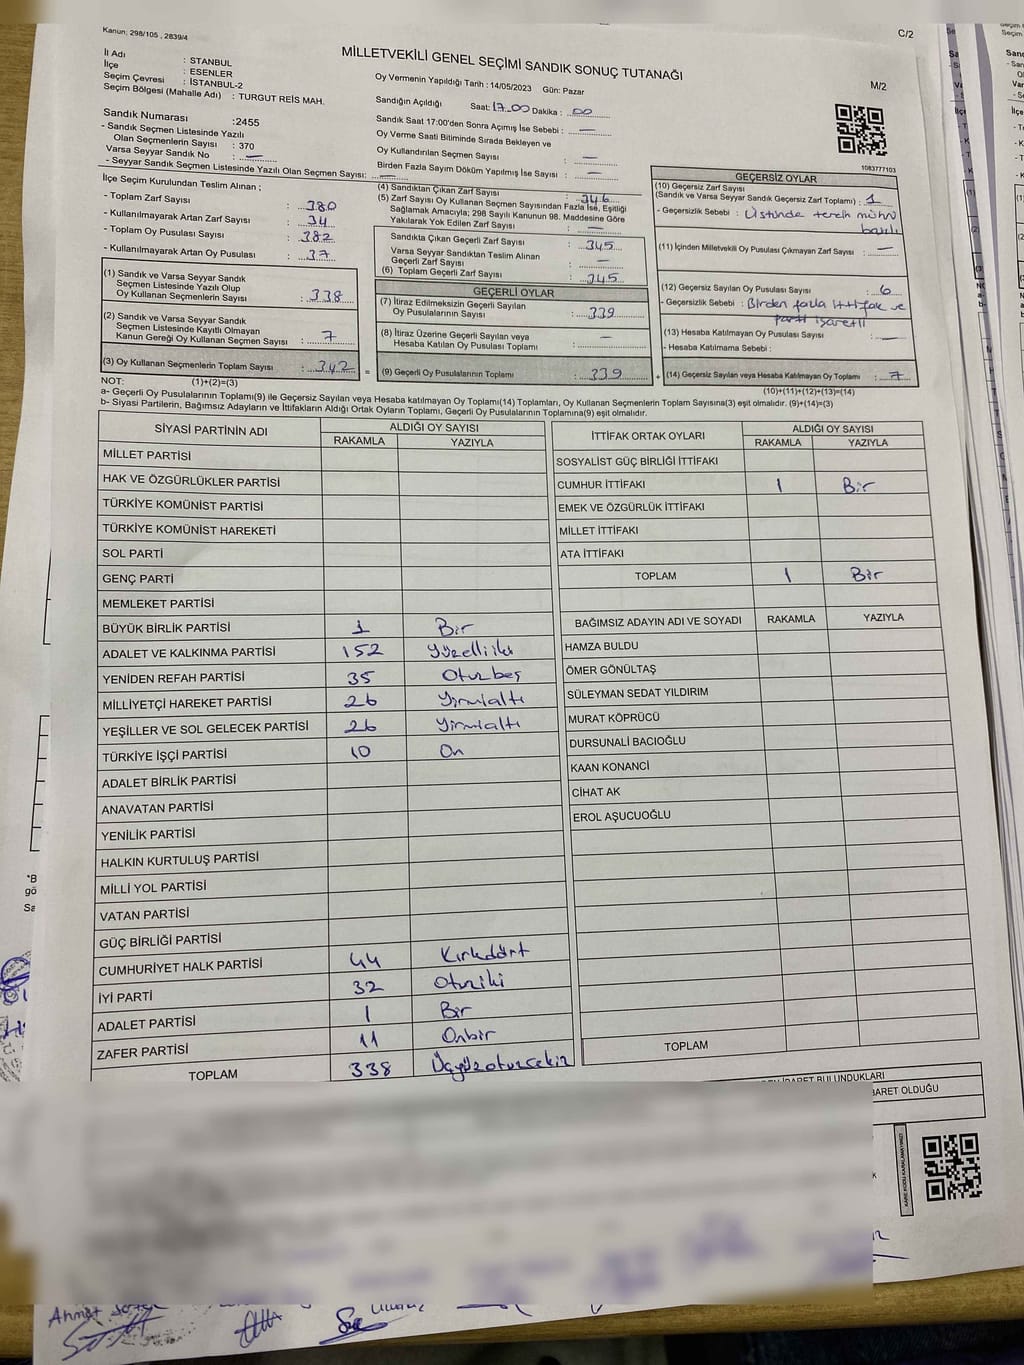 Kanun; 298/105 , 2839/4
C/2
MİLLETVEKİLİ GENEL SEÇİMİ SANDIK SONUÇ TUTANAĞI
M/2
İl Adı : STANBUL
İlçe : ESENLER
Seçim Çevresi : İSTANBUL-2
Seçim Bölgesi (Mahalle Adı) : TURGUT REİS MAH.
Oy Vermenin Yapıldığı Tarih : 14/05/2023 Gün: Pazar
Sandığın Açıldığı Saat: 17.00 Dakika : 00
Sandık Saat 17:00'den Sonra Açımış İse Sebebi : —
Oy Verme Saati Bitiminde Sırada Bekleyen ve
Oy Kullandırılan Seçmen Sayısı : —
Birden Fazla Sayım Döküm Yapılmış İse Sayısı : —
Sandık Numarası :2455
- Sandık Seçmen Listesinde Yazılı
Olan Seçmenlerin Sayısı : 370
Varsa Seyyar Sandık No : —
- Seyyar Sandık Seçmen Listesinde Yazılı Olan Seçmen Sayısı: —
1083777103
İlçe Seçim Kurulundan Teslim Alınan ;
- Toplam Zarf Sayısı : 380
- Kullanılmayarak Artan Zarf Sayısı : 34
- Toplam Oy Pusulası Sayısı : 382
- Kullanılmayarak Artan Oy Pusulası : 37
(1) Sandık ve Varsa Seyyar Sandık
Seçmen Listesinde Yazılı Olup
Oy Kullanan Seçmenlerin Sayısı : 338
(2) Sandık ve Varsa Seyyar Sandık
Seçmen Listesinde Kayıtlı Olmayan
Kanun Gereği Oy Kullanan Seçmen Sayısı : 7
(3) Oy Kullanan Seçmenlerin Toplam Sayısı : 342
(4) Sandıktan Çıkan Zarf Sayısı : 346
(5) Zarf Sayısı Oy Kullanan Seçmen Sayısından Fazla İse, Eşitliği
Sağlamak Amacıyla; 298 Sayılı Kanunun 98. Maddesine Göre
Yakılarak Yok Edilen Zarf Sayısı : —
Sandıkta Çıkan Geçerli Zarf Sayısı : 345
Varsa Seyyar Sandıktan Teslim Alınan
Geçerli Zarf Sayısı : —
(6) Toplam Geçerli Zarf Sayısı : 345
GEÇERLİ OYLAR
(7) İtiraz Edilmeksizin Geçerli Sayılan
Oy Pusulalarının Sayısı : 339
(8) İtiraz Üzerine Geçerli Sayılan veya
Hesaba Katılan Oy Pusulası Toplamı : —
= (9) Geçerli Oy Pusulalarının Toplamı : 339
GEÇERSİZ OYLAR
(10) Geçersiz Zarf Sayısı
(Sandık ve Varsa Seyyar Sandık Geçersiz Zarf Toplamı) : 1
- Geçersizlik Sebebi : Üstünde tercih mührü
basılı
(11) İçinden Milletvekili Oy Pusulası Çıkmayan Zarf Sayısı : —
(12) Geçersiz Sayılan Oy Pusulası Sayısı : 6
- Geçersizlik Sebebi : Birden fazla ittifak ve
parti işaretli
(13) Hesaba Katılmayan Oy Pusulası Sayısı : —
- Hesaba Katılmama Sebebi :
+ (14) Geçersiz Sayılan veya Hesaba Katılmayan Oy Toplamı : 7
NOT: (1)+(2)=(3)
(10)+(11)+(12)+(13)=(14)
a- Geçerli Oy Pusulalarının Toplamı(9) ile Geçersiz Sayılan veya Hesaba katılmayan Oy Toplamı(14) Toplamları, Oy Kullanan Seçmenlerin Toplam Sayısına(3) eşit olmalıdır. (9)+(14)=(3)
b- Siyasi Partilerin, Bağımsız Adayların ve İttifakların Aldığı Ortak Oyların Toplamı, Geçerli Oy Pusulalarının Toplamına(9) eşit olmalıdır.
SİYASİ PARTİNİN ADI ALDIĞI OY SAYISI
RAKAMLA YAZIYLA
MİLLET PARTİSİ
HAK VE ÖZGÜRLÜKLER PARTİSİ
TÜRKİYE KOMÜNİST PARTİSİ
TÜRKİYE KOMÜNİST HAREKETİ
SOL PARTİ
GENÇ PARTİ
MEMLEKET PARTİSİ
BÜYÜK BİRLİK PARTİSİ 1 Bir
ADALET VE KALKINMA PARTİSİ 152 Yüzelliiki
YENİDEN REFAH PARTİSİ 35 Otuzbeş
MİLLİYETÇİ HAREKET PARTİSİ 26 Yirmialtı
YEŞİLLER VE SOL GELECEK PARTİSİ 26 Yirmialtı
TÜRKİYE İŞÇİ PARTİSİ 10 On
ADALET BİRLİK PARTİSİ
ANAVATAN PARTİSİ
YENİLİK PARTİSİ
HALKIN KURTULUŞ PARTİSİ
MİLLİ YOL PARTİSİ
VATAN PARTİSİ
GÜÇ BİRLİĞİ PARTİSİ
CUMHURİYET HALK PARTİSİ 44 Kırkdört
İYİ PARTİ 32 Otuziki
ADALET PARTİSİ 1 Bir
ZAFER PARTİSİ 11 Onbir
TOPLAM 338 Üçyüzotuzsekiz
İTTİFAK ORTAK OYLARI ALDIĞI OY SAYISI
RAKAMLA YAZIYLA
SOSYALİST GÜÇ BİRLİĞİ İTTİFAKI
CUMHUR İTTİFAKI 1 Bir
EMEK VE ÖZGÜRLÜK İTTİFAKI
MİLLET İTTİFAKI
ATA İTTİFAKI
TOPLAM 1 Bir
BAĞIMSIZ ADAYIN ADI VE SOYADI RAKAMLA YAZIYLA
HAMZA BULDU
ÖMER GÖNÜLTAŞ
SÜLEYMAN SEDAT YILDIRIM
MURAT KÖPRÜCÜ
DURSUNALİ BACIOĞLU
KAAN KONANCİ
CİHAT AK
EROL AŞUCUOĞLU
TOPLAM
BULUNDUKLARI
BARET OLDUĞU
Ahmet